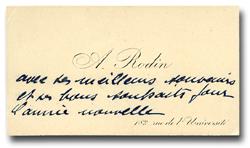 A. Rodin
avec ses meilleurs souvenirs
et ses bons souhaits pour
l'année nouvelle
182 rue de l'Université